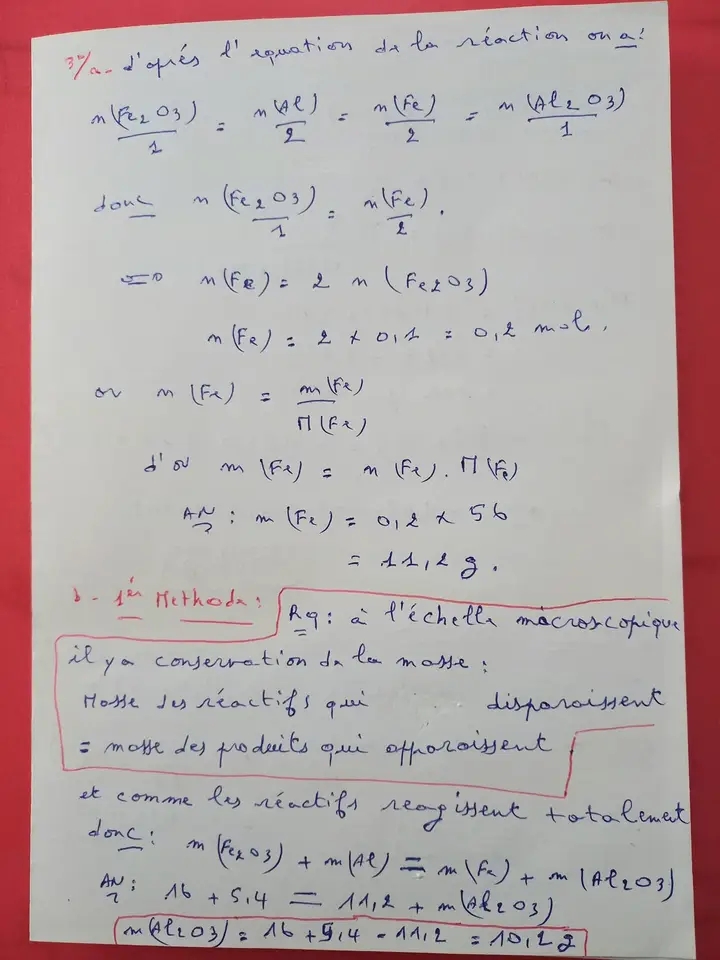 3°/a- d'après l'equation de la réaction on a:
n(Fe2O3)/1 = n(Al)/2 = n(Fe)/2 = n(Al2O3)/1
donc n(Fe2O3)/1 = n(Fe)/2.
=> n(Fe) = 2 n(Fe2O3)
n(Fe) = 2 × 0,1 = 0,2 mol.
or n(Fe) = m(Fe)/M(Fe)
d'où m(Fe) = n(Fe). M(Fe)
AN: m(Fe) = 0,2 × 56
= 11,2 g.
b- 1ère Methode: Rq: à l'échelle macroscopique
il y a conservation de la masse:
Masse des réactifs qui disparoissent
= masse des produits qui apparoissent
et comme les réactifs reagissent totalement
donc: m(Fe2O3) + m(Al) = m(Fe) + m(Al2O3)
AN: 16 + 5,4 = 11,2 + m(Al2O3)
m(Al2O3) = 16 + 5,4 - 11,2 = 10,2 g